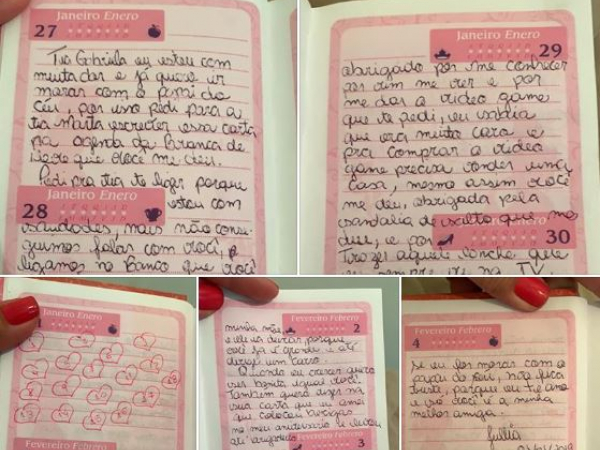 Janeiro Enero
27
Tia Gabriela eu estou com
muita dor e já quero ir
morar com o papai do
céu, por isso pedi para a
tia Marta escrever essa carta
na agenda da Branca de
Neve que você me deu.
Pedi pra tia te ligar porque
Janeiro Enero
28
estou com
saudades, mais não conse-
guimos falar com você, e
ligamos no Banco que você
Janeiro Enero
29
obrigado por me conhecer
por vim me ver e por
me dar o video game
que te pedi, eu sabia
que era muito caro e
pra comprar o video
game precisa vender uma
casa, mesmo assim você
me deu, obrigada pela
sandalia de salto que me
deu, e por
30
trazer aquele lanche que
eu sempre vi na TV.
Janeiro Enero
1
Fevereiro Febrero
Fevereiro Febrero
2
minha mãe,
e ele vai deixar, porque
você já é grande e até
dirigi um carro.
Quando eu crescer quero
ser bonita igual você.
Também quero dizer na
sua carta que eu amei
que colocou
no meu aniversário
obrigado
3
Fevereiro Febrero
4
Se eu for morar com o
papai do céu, não fica
triste, porque eu te amo
e você é a minha
melhor amiga.
Júlia